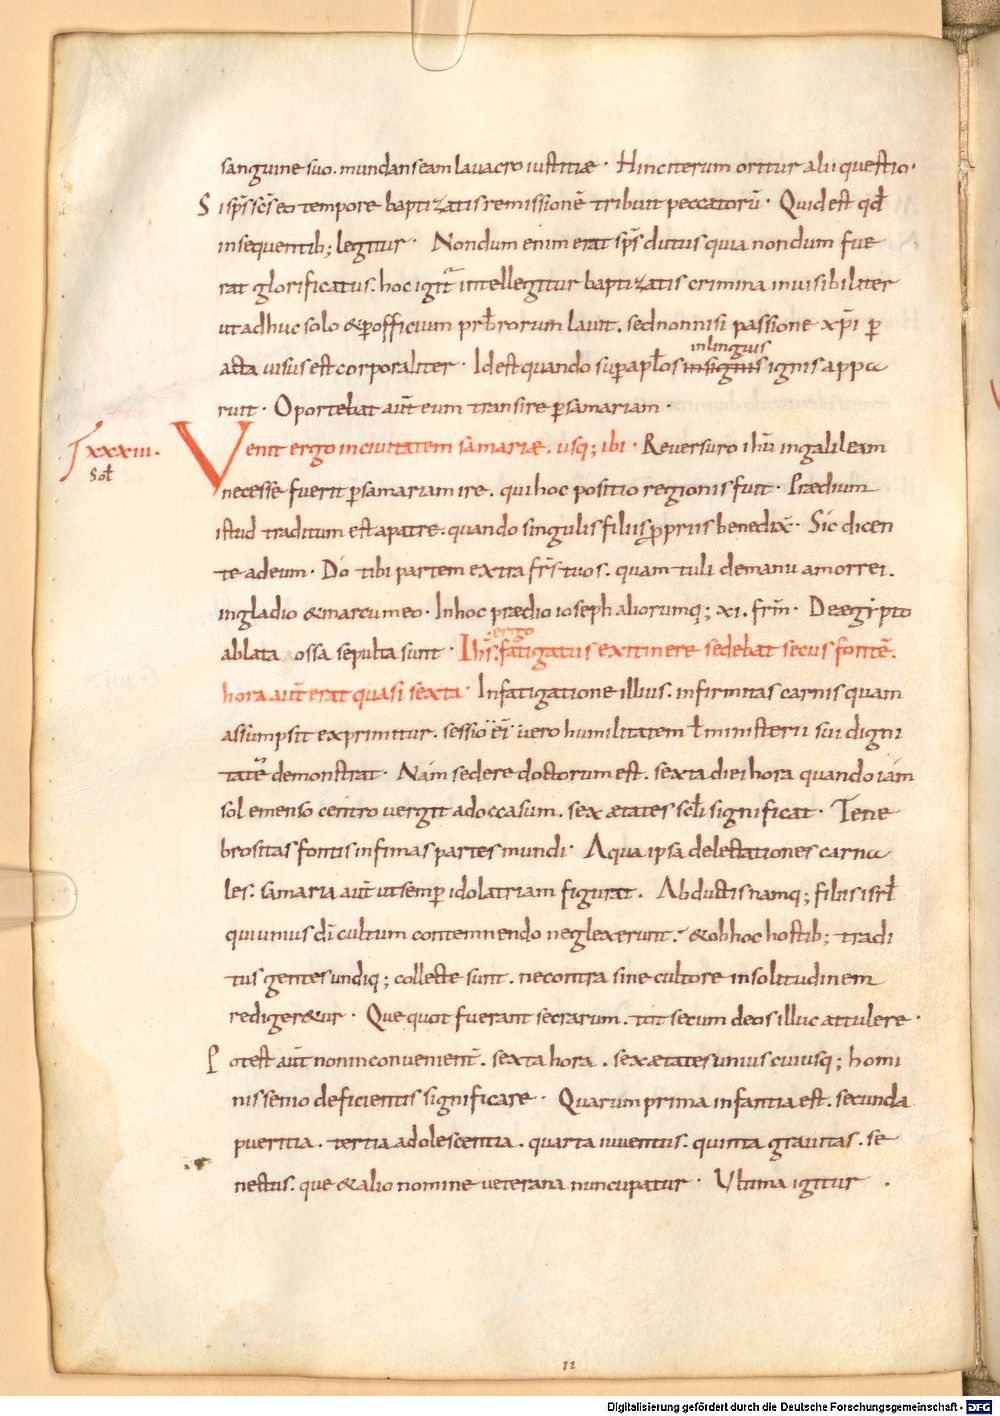 sanguine suo. mundans eam lavacro iustitiæ. Hinc iterum oritur alii questio.
Si sp̄s sc̄s eo tempore baptizatis remissionē tribuit peccatorū. Quid est qđ
in sequentib; legitur. Nondum enim erat sp̄s datus quia nondum fue
rat glorificatus. hoc igit̄ intellegitur baptizatis crimina invisibiliter
ut adhuc solo & ꝑ officium prb̄rorum lavit. sed non nisi passione xp̄i ꝑ
acta visus est corporaliter. Id est quando suꝑ apłos in signis ignis appa
in linguis
ruit. Oportebat aūt eum transire ꝑ samariam.
xxxiii.
Venit ergo in civitatem samariæ. usq; ibi. Reversuro ihū in galileam
necesse fuerit ꝑ samariam ire. qui hoc positio regionis fuit. Prædium
istud traditum est a patre. quando singulis filiis ꝓpriis benedix̄. Sic dicen
te ad eum. Do tibi partem extra fr̄s tuos. quam tuli de manu amorrei.
in gladio & in arcu meo. In hoc prædio ioseph aliorumq; xi. frm̄. De ægypto
ablata ossa sepulta sunt. Ih̄s. fatigatus ex itinere sedebat secus fontē.
ergo
hora aūt erat quasi sexta. In fatigatione illius. infirmitas carnis quam
assumpsit exprimitur. sessio ei vero humilitatem ł ministerii sui digni
tatē demonstrat. Nam sedere doctorum est. sexta diei hora quando iam
sol emenso centro vergit ad occasum. sex ætates scłi significat. Tene
brositas fontis infimas partes mundi. Aqua ipsa delectationes carna
les. samaria aūt ut semꝑ idolatriam figurat. Abductis namq; filiis isrł
qui unius dī cultum contemnendo neglexerunt. & ob hoc hostib; tradi
tus gentes undiq; collecte sunt. ne contra sine cultore in solitudinem
redigeretur. Que quot fuerant secrarum. tot secum deos illuc attulere.
Potest aūt non inconvenient̄. sexta hora. sex ætates unius cuiusq; homi
nis senio deficientis significare. Quarum prima infantia est. secunda
pueritia. tertia adolescentia. quarta iuventus. quinta gravitas. se
nectus. que & alio nomine veterana nuncupatur. Ultima igitur .
11
Digitalisierung gefördert durch die Deutsche Forschungsgemeinschaft - DFG